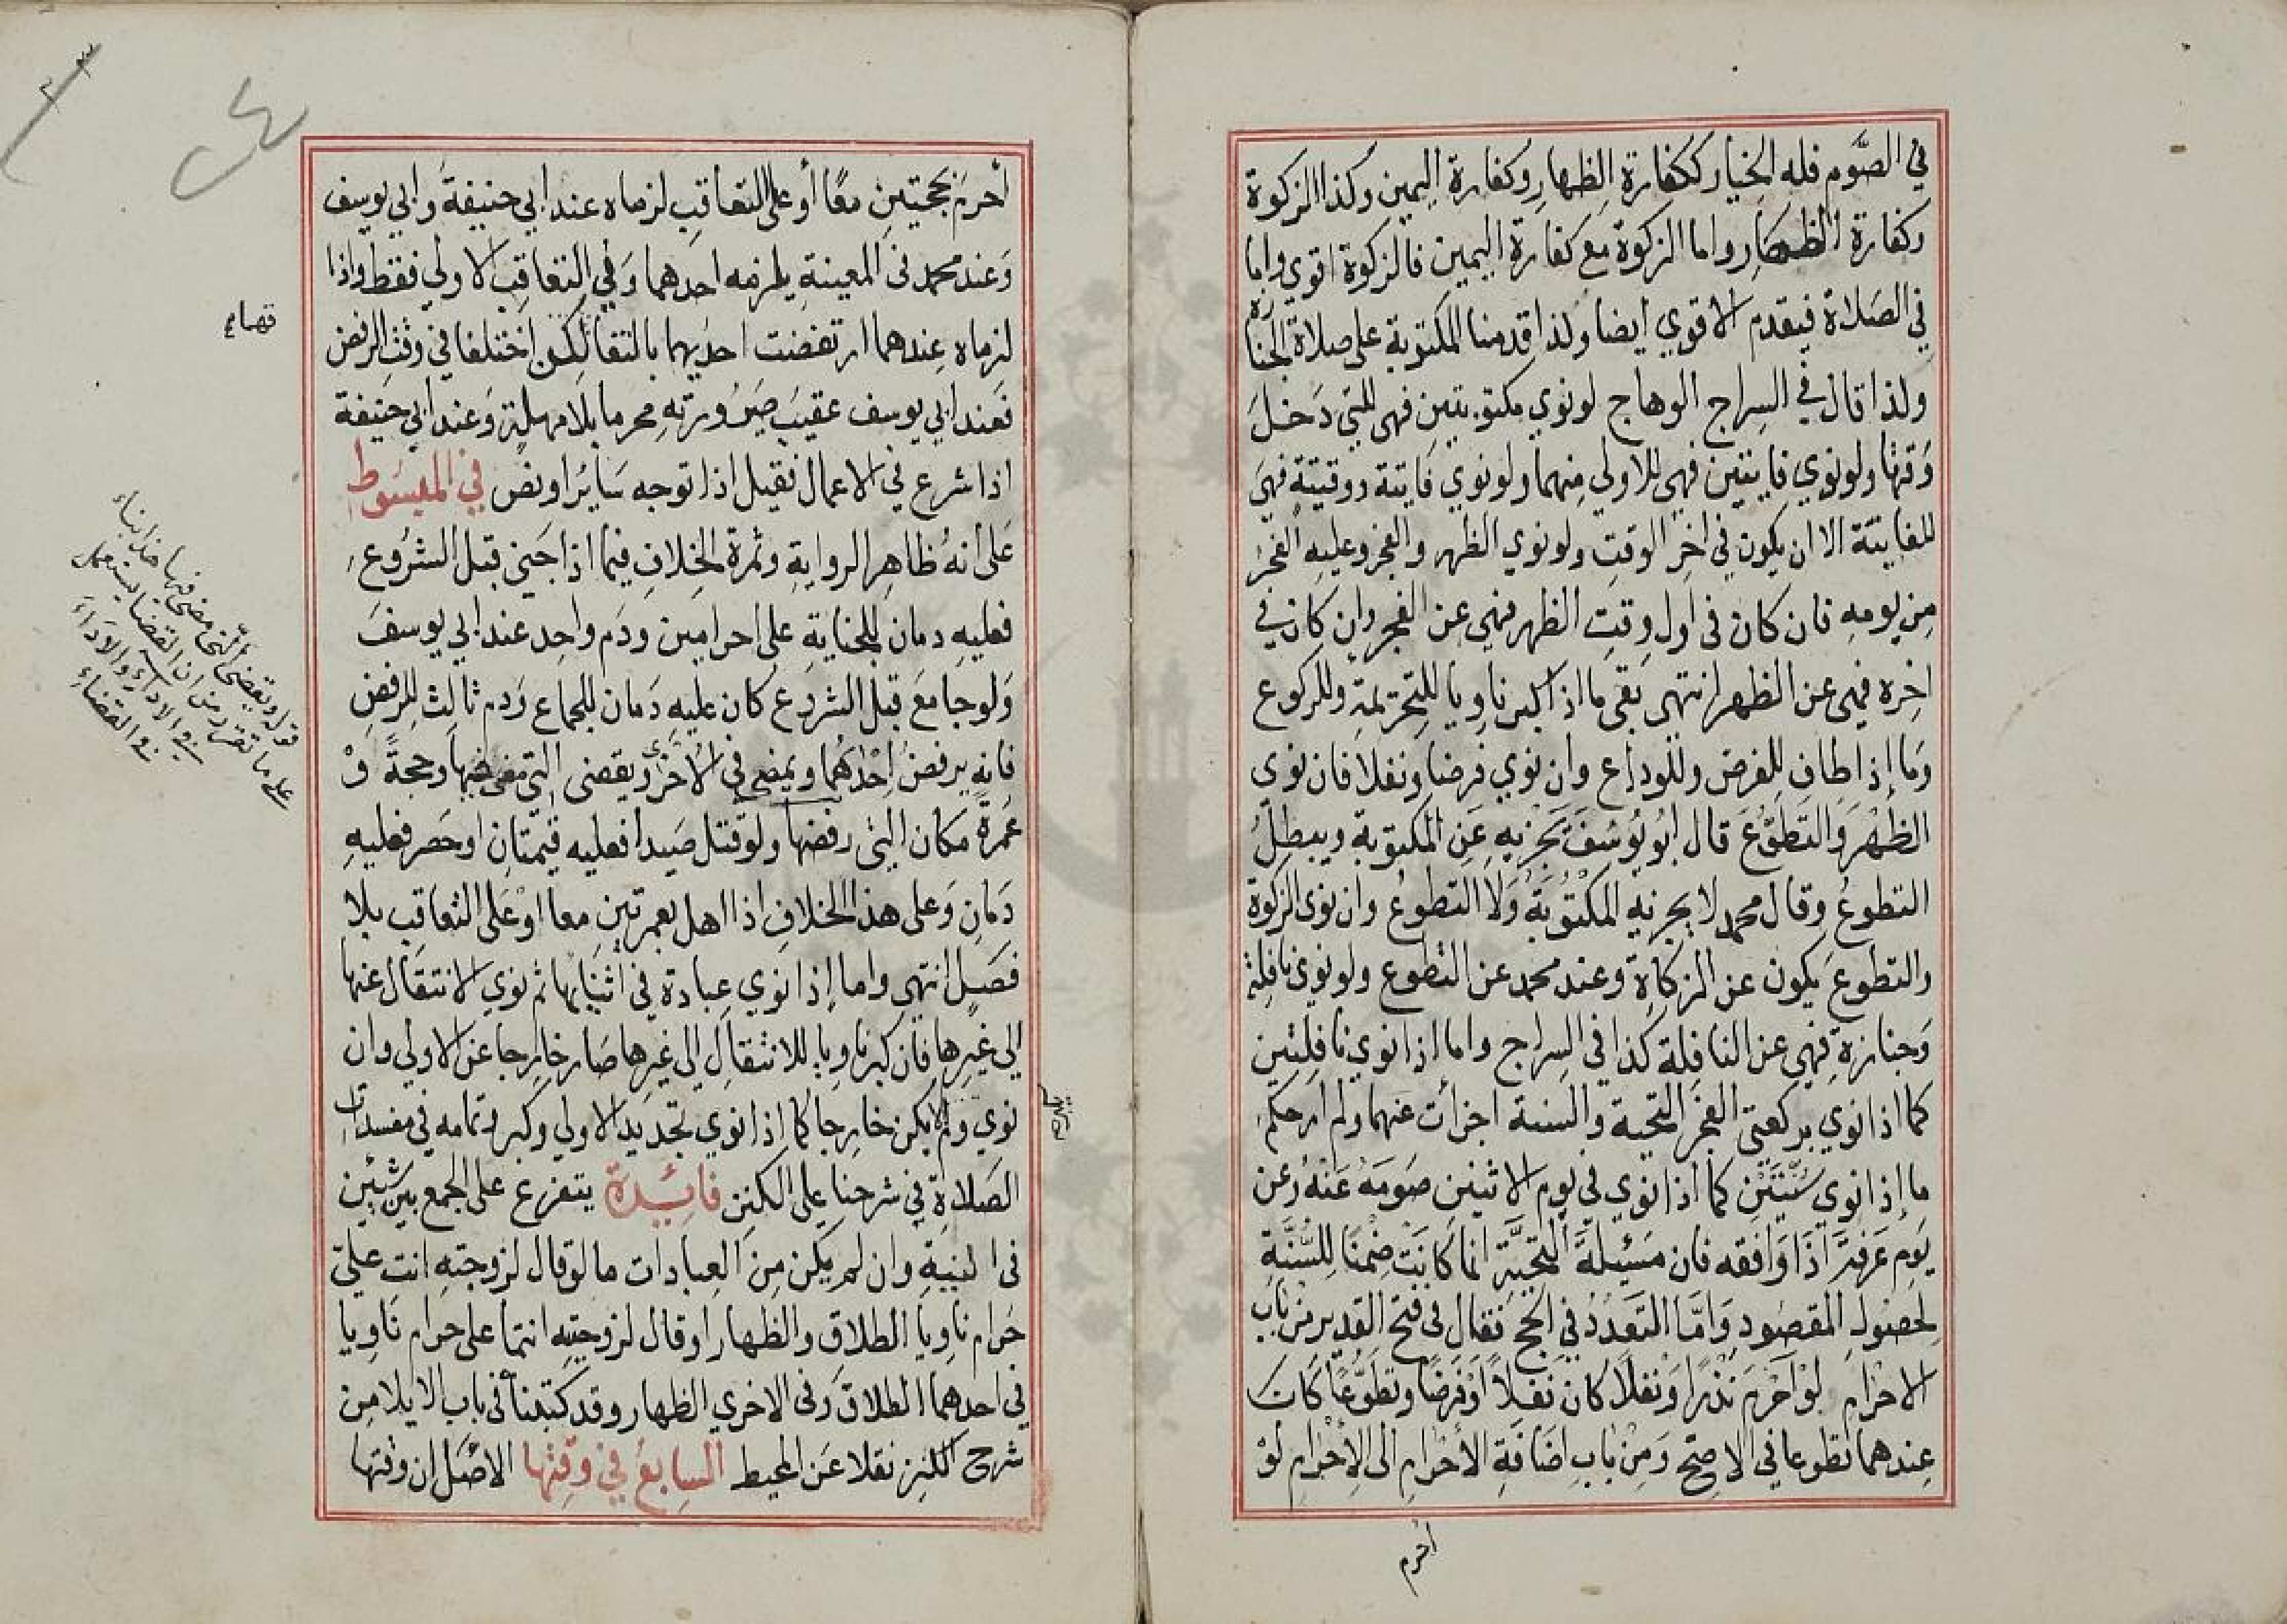 في الصوم فله الخيار ككفارة الظهار وكفارة اليمين وكذا الزكوة
وكفارة الظهار واما الزكوة مع كفارة اليمين فالزكوة اقوي واما
في الصلاة فيقدم الاقوي أيضا ولذا قدمنا المكتوبة على صلاة الجنازة
ولذا قال في السراج الوهاج لو نوي مكتوبتين فهي للتي دخل
وقتها ولو نوي فايتتين فهي للاولي منهما ولو نوي فايتة ووقتية فهي
للفايتة الا ان يكون في اخر الوقت ولو نوي الظهر والفجر وعليه الفجر
من يومه فان كان في اول وقت الظهر فهي عن الفجر وان كان في
اخره فهي عن الظهر انتهي بقي ما اذا كبر ناويا للتحريمة وللركوع
وما إذا طاف للفرض وللوداع وان نوي فرضا ونفلا فان نوى
الظهر والتطوع قال ابو يوسف تجزيه عن المكتوبة ويبطل
التطوع وقال محمد لا يجزيه المكتوبة ولا التطوع وان نوى الزكوة
والتطوع يكون عن الزكاة وعند محمد عن التطوع ولو نوي نافلة
وجنازة فهي عن النافلة كذا في السراج واما اذا نوي نافلتين
كما اذا نوي بركعتي الفجر التحية والسنة اجزأت عنهما ولم ار حكم
ما إذا نوي سنتين كما اذا نوي في يوم الاثنين صومه عنه وعن
يوم عرفة اذا وافقه فان مسئلة التحية انما كانت ضمنا للسنة
لحصول المقصود واما التعدد في الحج فقال في فتح القدير من باب
الاحرام لو احرم نذرا ونفلا كان نفلا او فرضا وتطوعا كان
عندهما تطوعا في الاصح ومن باب اضافة الاحرام الى الاحرام لو
أحرم
أحرم بحجتين معًا أو على التعاقب لزماه عند ابي حنيفة وابي يوسف
وعند محمد في المعينة يلزمه احدهما وفي التعاقب الاولي فقط واذا
لزماه عندهما ارتفضت احديهما بالتقا لكن اختلفا في وقت الرفض
فعند ابي يوسف عقيب صيرورته محرما بلا مهلة وعند ابي حنيفة
اذا شرع في الاعمال فقيل اذا توجه سايرا ونص في المبسوط
على أنه ظاهر الرواية وثمرة الخلاف فيما اذا جني قبل الشروع
فعليه دمان للجناية على احرامين ودم واحد عند ابي يوسف
ولو جامع قبل الشروع كان عليه دمان للجماع ودم ثالث للرفض
فانه يرفض احداهما ويمضي في الاخرى ويقضى التي مضى فيها وحجة و
عمرة مكان التي رفضها ولو قتل صيدا فعليه قيمتان او حصر فعليه
دمان وعلى هذا الخلاف اذا اهل بعمرتين معا او على التعاقب بلا
فصل انتهي واما إذا نوي عبادة في اثنايها ثم نوي الانتقال عنها
الي غيرها فان كبر ناويا للانتقال الي غيرها صار خارجا عن الاولي وان
نوي ولم يكن خارجا كما اذا نوي تجديد الاولي وكبر وتمامه في مفسدات
الصلاة في شرحنا على الكنز فائدة يتفرع على الجمع بين شيئين
في النية وان لم يكن من العبادات ما لو قال لزوجته انت علي
حرام ناويا الطلاق والظهار او قال لزوجتيه انتما علي حرام ناويا
في احدهما الطلاق وفي الاخري الظهار وقد كتبنا في باب الايلا من
شرح الكنز نقلا عن المحيط السابع في وقتها الاصل ان وقتها
قوله ويقضي التي مضى فيها هذا بناء
على ما تقرر من ان القضا يستعمل
في الاداء والاداء
في القضاء